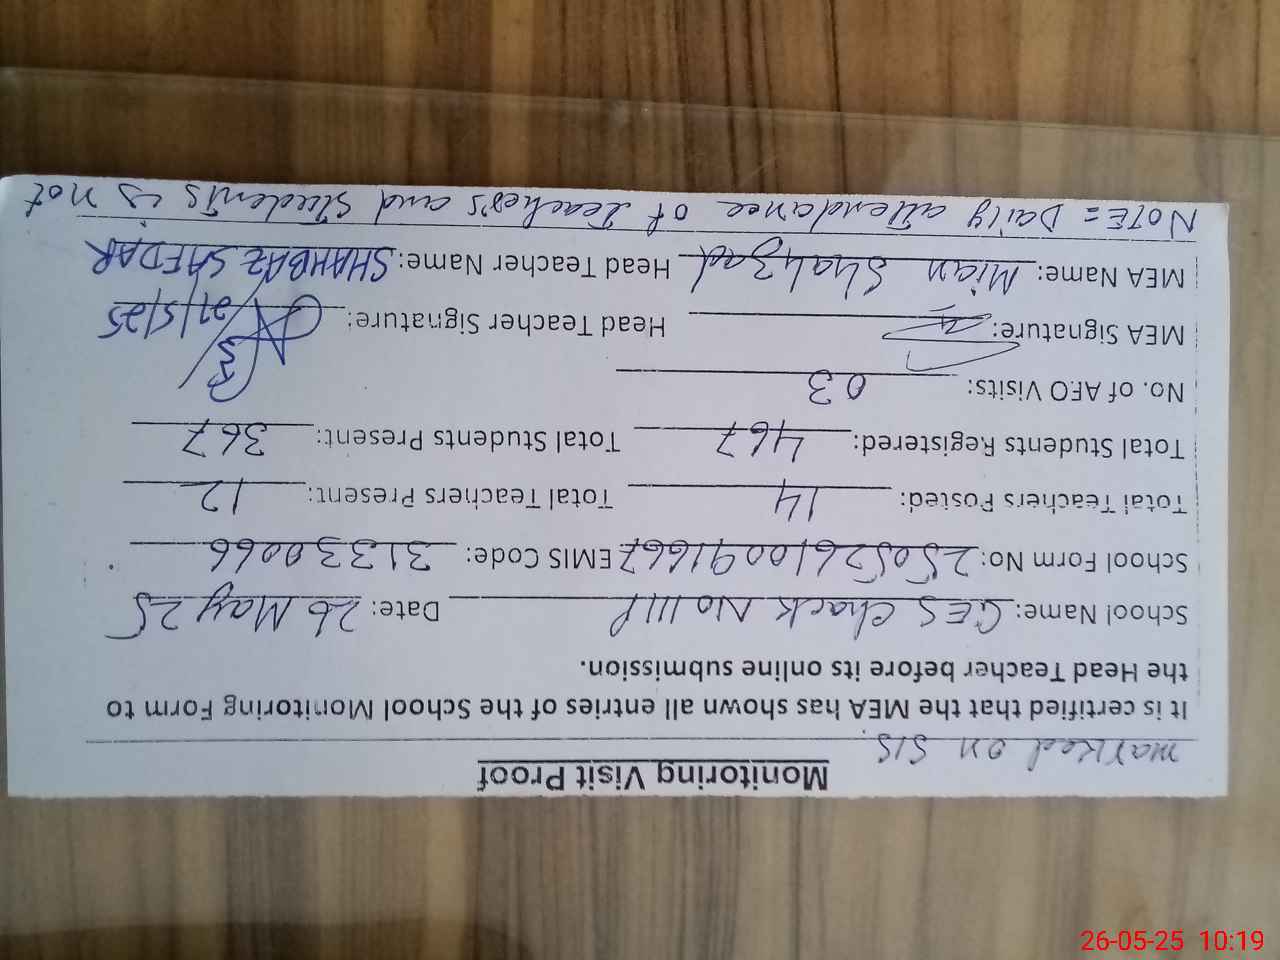 Monitoring Visit Proof
marked on SIS.
It is certified that the MEA has shown all entries of the School Monitoring Form to
the Head Teacher before its online submission.
School Name: GES Chack No 111P Date: 26 May 25
School Form No: 25052610091667 EMIS Code: 31330066
Total Teachers Posted: 14 Total Teachers Present: 12
Total Students Registered: 467 Total Students Present: 367
No. of AEO Visits: 03
MEA Signature: Head Teacher Signature: /5/25
MEA Name: Mian Shahzad Head Teacher Name: SHAHBAZ SAFDAR
NOTE= Daily attendance of teacher's and students is not
26-05-25 10:19